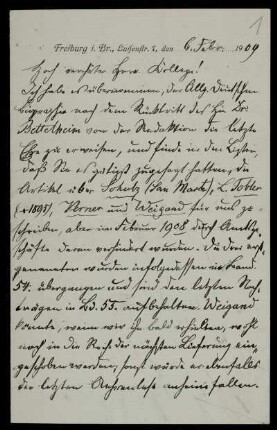 1
Freiburg i. Br., Luisenstr. 7, den 6. Febr. 1909
Hoch verehrter Herr Kollege!
Ich habe es übernommen, der Allg. Deutschen
Biographie nach dem Rücktritt des Hn Dr.
Bettelheim von der Redaktion die letzte
Ehre zu erweisen, und finde in den Listen,
daß Sie es gütigst zugesagt hatten, die
Artikel über Schott (San Marte), L. Tobler
(† 1895), Verner und Weigand für uns zu
schreiben, aber im Februar 1908 durch Amtsge-
schäfte daran verhindert wurden. Die drei erst-
genannten wurden infolgedessen in Band
54 übergangen und sind den letzten Nach-
trägen in Bd. 55. aufbehalten. Weigand
könnte, wenn wir ihn bald erhielten, wohl
noch in die Reihe der nächsten Lieferung ein-
geschoben werden, sonst würde er ebenfalls
der letzten Aehrenlese anheimfallen.